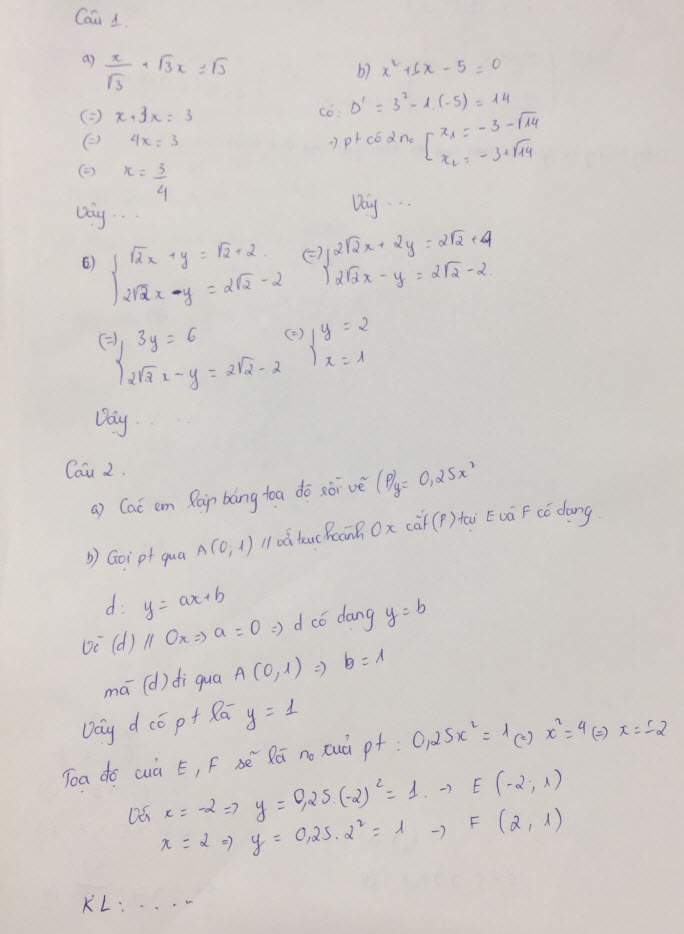 Câu 1.
a) x/√3 + √3x = √3
(=) x + 3x = 3
(=) 4x = 3
(=) x = 3/4
Vậy ...
b) x² + 6x - 5 = 0
có: Δ' = 3² - 1.(-5) = 14
=) pt có 2 n₀ [ x₁ = -3 - √14
x₂ = -3 + √14
Vậy ...
6) { √2x + y = √2 + 2. (=) { 2√2x + 2y = 2√2 + 4
2√2x - y = 2√2 - 2 2√2x - y = 2√2 - 2.
(=) { 3y = 6 (=) { y = 2
2√2x - y = 2√2 - 2 x = 1
Vậy ....
Câu 2.
a) Các em lập bảng tọa độ rồi vẽ (P) y = 0,25x²
b) Gọi pt qua A(0,1) // với trục hoành Ox cắt (P) tại E và F có dạng.
d: y = ax+b
Vì (d) // Ox => a = 0 => d có dạng y = b
mà (d) đi qua A(0,1) => b = 1
Vậy d có pt là y = 1
Toạ độ của E, F sẽ là n₀ của pt : 0,25x² = 1 (=) x² = 4 (=) x = ±2
Với x = -2 => y = 0,25.(-2)² = 1. → E (-2, 1)
x = 2 => y = 0,25.2² = 1 → F (2, 1)
KL: .....